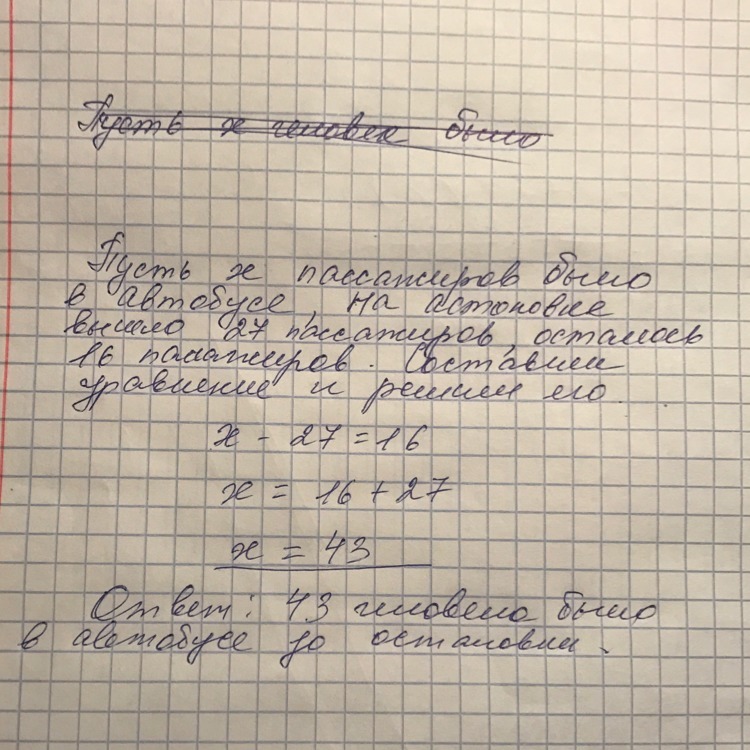 Пусть х человек было
Пусть х пассажиров было
в автобусе, на астоновке
вышло 27 пассажиров, осталось
16 пасажиров. Составим
уравнение и решим его.
х - 27 = 16
х = 16 + 27
х = 43
Ответ: 43 человека было
в автобусе до остановки.